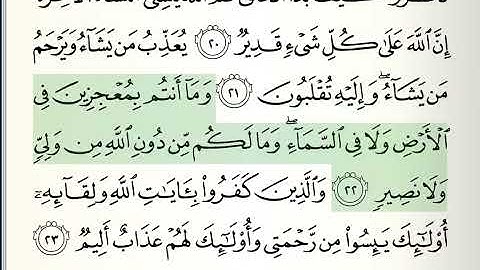 إِنَّ ٱللَّهَ عَلَىٰ كُلِّ شَىۡءٖ قَدِيرٞ ٢٠ يُعَذِّبُ مَن يَشَآءُ وَيَرۡحَمُ
مَن يَشَآءُۖ وَإِلَيۡهِ تُقۡلَبُونَ ٢١ وَمَآ أَنتُم بِمُعۡجِزِينَ فِى
ٱلۡأَرۡضِ وَلَا فِى ٱلسَّمَآءِۖ وَمَا لَكُم مِّن دُونِ ٱللَّهِ مِن وَلِىّٖ
وَلَا نَصِيرٖ ٢٢ وَٱلَّذِينَ كَفَرُواْ بِـَٔايَٰتِ ٱللَّهِ وَلِقَآئِهِۦٓ
أُوْلَٰٓئِكَ يَئِسُواْ مِن رَّحۡمَتِى وَأُوْلَٰٓئِكَ لَهُمۡ عَذَابٌ أَلِيمٞ ٢٣